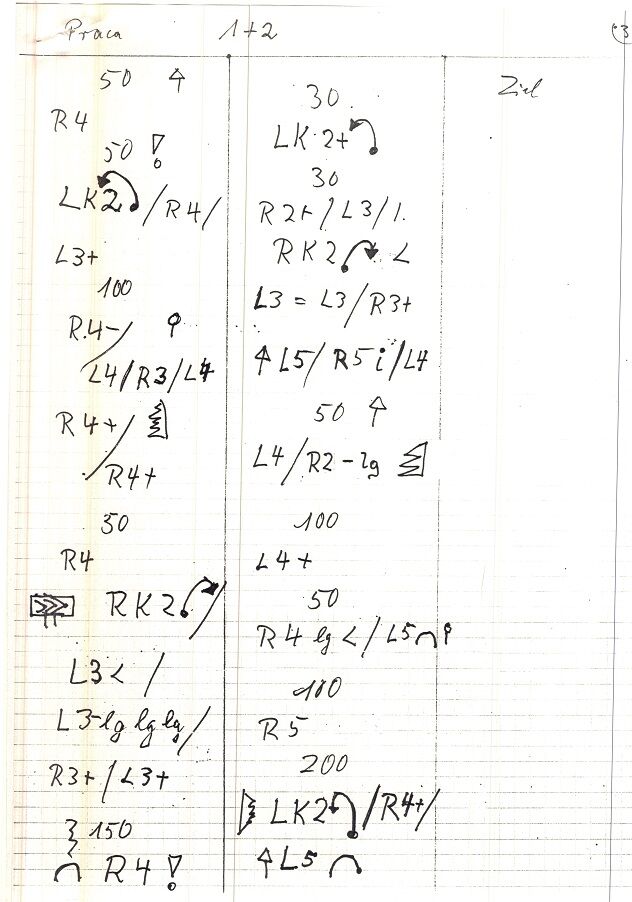 Praca 1+2 3
50
R4
50 !
LK2 / R4 /
L3+
100
R.4- /
L4 / R3 / L4
R4+ /
R4+
50
R4
RK2 /
L3 < /
L3-lg lg lg /
R3+ / L3+
150
R4 !
30.
LK 2+
30
R2+ / L3 / 1.
RK2 <
L3 = L3 / R3+
L5 / R5 i / L4
50
L4 / R2-lg
100
L4+
50
R4 lg < / L5
100
R5
200
LK2 / R4+ /
L5
Ziel